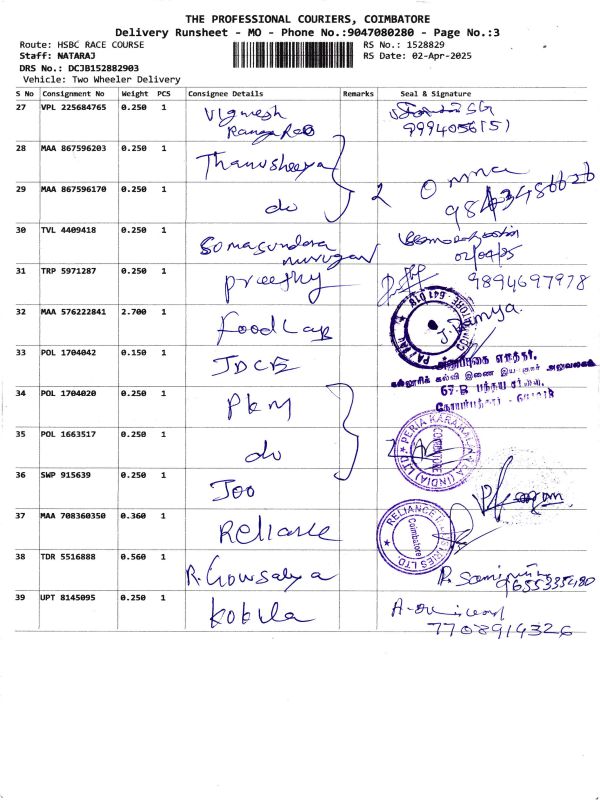 THE PROFESSIONAL COURIERS, COIMBATORE
Delivery Runsheet - MO - Phone No.:9047080280 - Page No.:3
Route: HSBC RACE COURSE
RS No.: 1528829
Staff: NATARAJ
RS Date: 02-Apr-2025
DRS No.: DCJB152882903
Vehicle: Two Wheeler Delivery
S No Consignment No Weight PCS Consignee Details Remarks Seal & Signature
27 VPL 225684765 0.250 1 Vignesh
Ranga Rao
28 MAA 867596203 0.250 1 Thanusheeya
29 MAA 867596170 0.250 1 do 2
30 TVL 4409418 0.250 1 Somasundara
murugan
02/04/25
31 TRP 5971287 0.250 1 Preethy 9894697978
32 MAA 576222841 2.700 1 Food Lab J. Ramya.
COIMBATORE - 641 018
33 POL 1704042 0.150 1 JDCE
அனுப்புகை எழுத்தர்,
கல்லூரிக் கல்வி இணை இயக்குநர் அலுவலகம்
67-B
34 POL 1704020 0.250 1 PKM
35 POL 1663517 0.250 1 do
PERIA KARAMALAI (INDIA) LTD
COIMBATORE
36 SWP 915639 0.250 1 Joo
37 MAA 708360350 0.360 1 Reliance
RELIANCE INDUSTRIES LTD.
Coimbatore
38 TDR 5516888 0.560 1 R. Gowsalya
9655335480
39 UPT 8145095 0.250 1 Kokila
7708914326